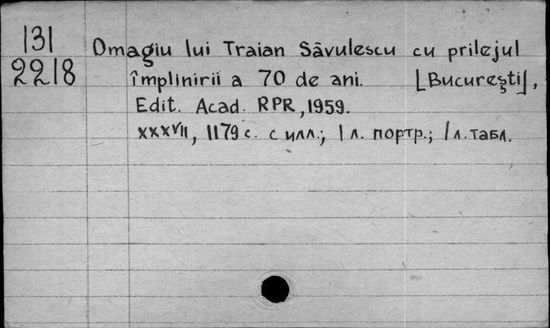 131
2218
Omagiu lui Traian Săvulescu cu prilejul
împlinirii a 70 de ani. [Bucureşti],
Edit. Acad. RPR, 1959.
XXXVII, 1179 с. с илл.; 1 л. портр.; 1 л. табл.